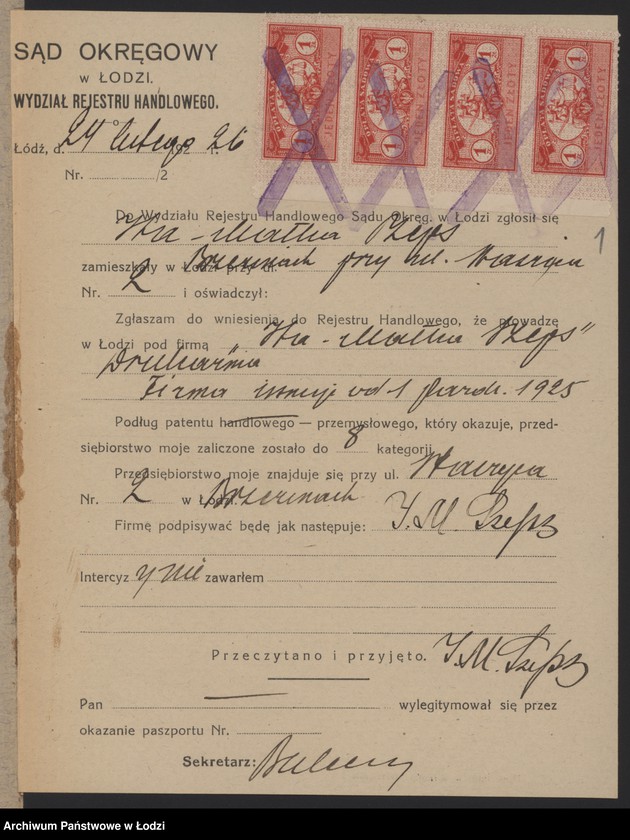 SĄD OKRĘGOWY
w ŁODZI.
WYDZIAŁ REJESTRU HANDLOWEGO.
Łódź, d. 24 lutego 192 r. 26
Nr. /2
1 1 1 1
JEDEN ZŁOTY JEDEN ZŁOTY JEDEN ZŁOTY JEDEN ZŁOTY
1 1 1 1 1 1 1 1
Do Wydziału Rejestru Handlowego Sądu Okręg. w Łodzi zgłosił się
1
zamieszkały w Łodzi przy ul. Brzezinach przy ul.
Nr. 2 i oświadczył:
Zgłaszam do wniesienia do Rejestru Handlowego, że prowadzę
w Łodzi pod firmą
Drukarnia
Firma istnieje od 1 paźdz. 1925
Podług patentu handlowego — przemysłowego, który okazuje, przed-
siębiorstwo moje zaliczone zostało do 8 kategorji
Przedsiębiorstwo moje znajduje się przy ul.
Nr. 2 w Łodzi. Brzezinach
Firmę podpisywać będę jak następuje: I. M. Szeps
Intercyzy nie zawarłem
Przeczytano i przyjęto. I. M. Szeps
Pan wylegitymował się przez
okazanie paszportu Nr.
Sekretarz:
Archiwum Państwowe w Łodzi